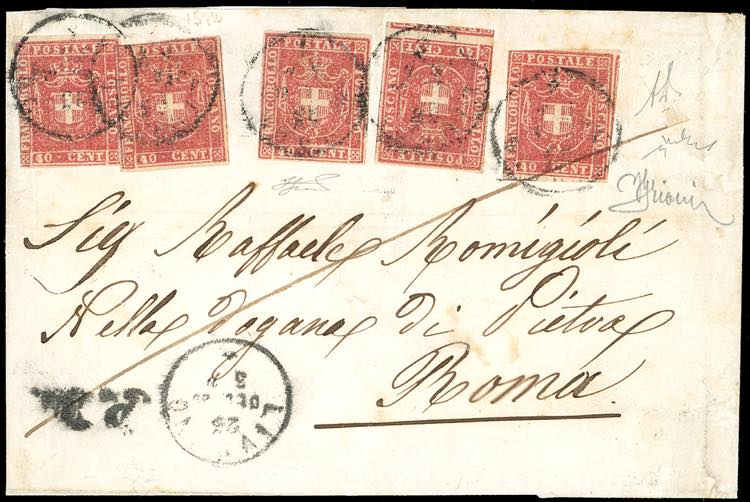 FRANCOBOLLO POSTALE TOSCANO
40 · CENT.
FRANCOBOLLO POSTALE TOSCANO
40 · CENT.
FRANCOBOLLO POSTALE TOSCANO
40 · CENT.
FRANCOBOLLO POSTALE TOSCANO
40 CENT
FRANCOBOLLO POSTALE TOSCANO
40 CENT
Sig Raffaele Romigioli
Nella Dogana di Pietra
Roma
P.D.
DEC